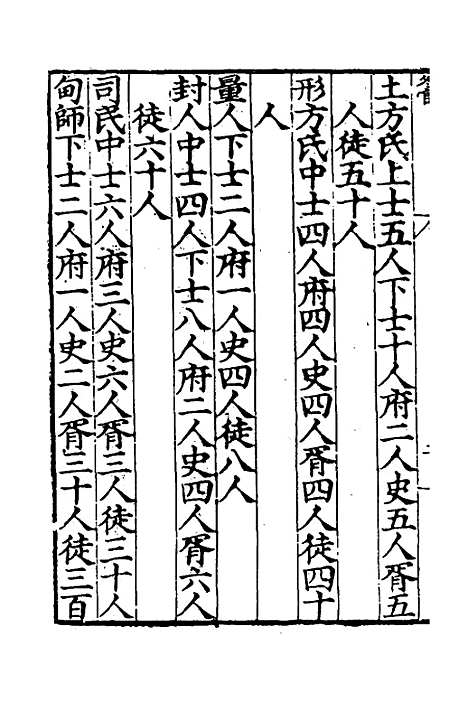 土方氏上士五人下士十人府二人史五人胥五
人徒五十人
形方氏中士四人府四人史四人胥四人徒四十
人
量人下士二人府一人史四人徒八人
封人中士四人下士八人府二人史四人胥六人
徒六十人
司民中士六人府三人史六人胥三人徒三十人
甸師下士二人府一人史二人胥三十人徒三百